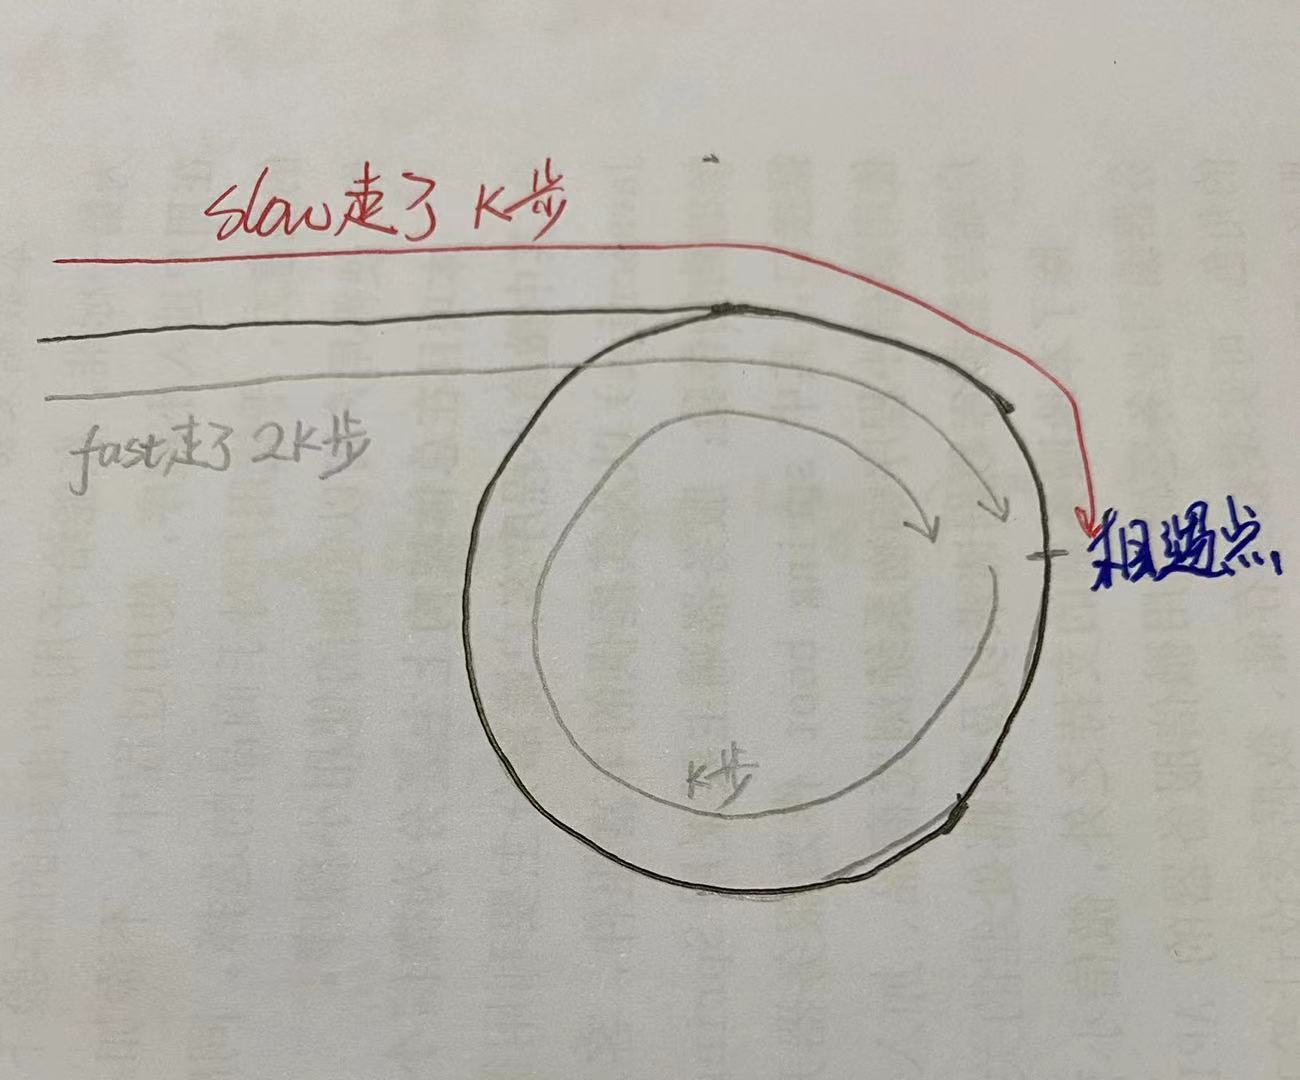 slow走了 K步
fast走了 2K步
相遇点
K步